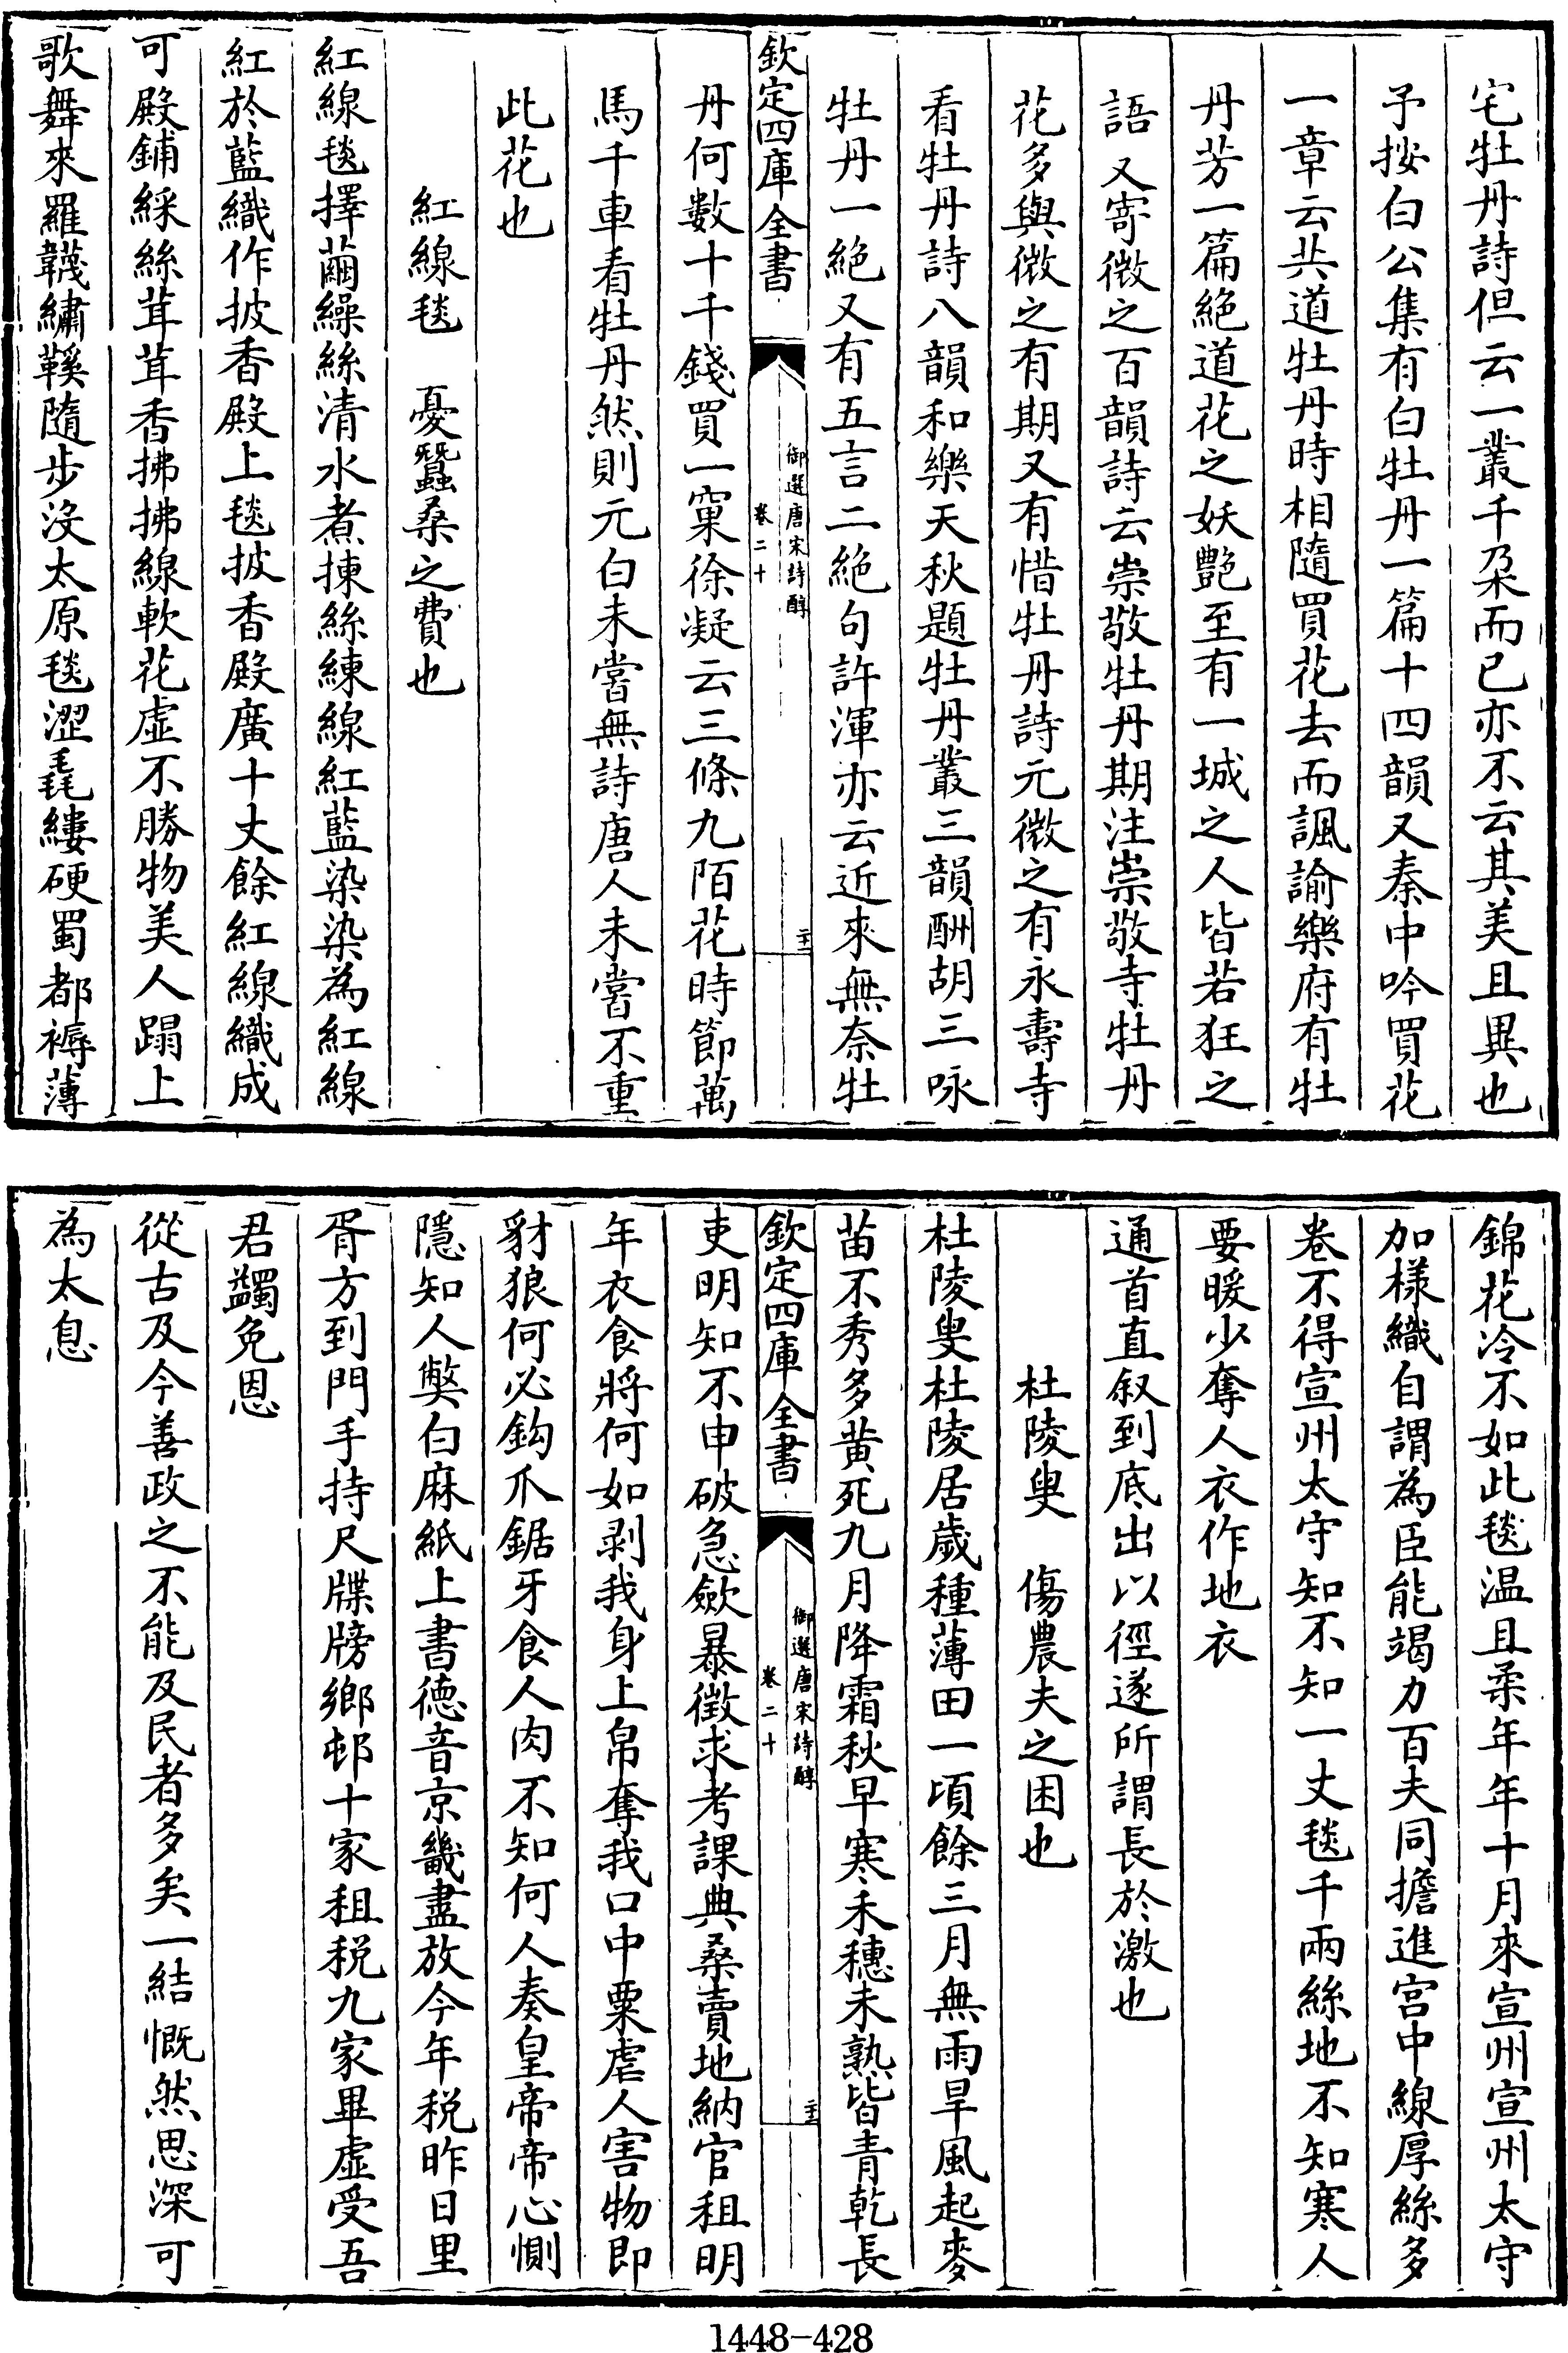 宅牡丹詩但云一叢千朶而已亦不云其美且異也
予按白公集有白牡丹一篇十四韻又秦中吟買花
一章云共道牡丹時相隨買花去而諷諭樂府有牡
丹芳一篇絶道花之妖艷至有一城之人皆若狂之
語又寄微之百韻詩云崇敬牡丹期注崇敬寺牡丹
花多與微之有期又有惜牡丹詩元微之有永壽寺
看牡丹詩八韻和樂天秋題牡丹叢三韻酬胡三咏
牡丹一絶又有五言二絶句許渾亦云近來無奈牡
欽定四庫全書
御選唐宋詩醇
卷二十
二十一
丹何數十千錢買一窠徐凝云三條九陌花時節萬
馬千車看牡丹然則元白未嘗無詩唐人未嘗不重
此花也
紅線毯 憂蠶桑之費也
紅線毯擇繭繰絲清水煮揀絲練線紅藍染染為紅線
紅於藍織作披香殿上毯披香殿廣十丈餘紅線織成
可殿鋪綵絲茸茸香拂拂線軟花虚不勝物美人蹋上
歌舞來羅韈繡鞵隨步没太原毯澀毳縷硬蜀都褥薄
錦花冷不如此毯温且柔年年十月來宣州宣州太守
加樣織自謂為臣能竭力百夫同擔進宫中線厚絲多
卷不得宣州太守知不知一丈毯千兩絲地不知寒人
要暖少奪人衣作地衣
通首直叙到底出以徑遂所謂長於激也
杜陵叟 傷農夫之困也
杜陵叟杜陵居歲種薄田一頃餘三月無雨旱風起麥
苗不秀多黄死九月降霜秋早寒禾穗未熟皆青乾長
欽定四庫全書
御選唐宋詩醇
卷二十
二十二
吏明知不申破急斂暴徵求考課典桑賣地納官租明
年衣食將何如剥我身上帛奪我口中粟虐人害物即
豺狼何必鈎爪鋸牙食人肉不知何人奏皇帝帝心惻
隱知人弊白麻紙上書德音京畿盡放今年税昨日里
胥方到門手持尺牒牓鄉邨十家租税九家畢虚受吾
君蠲免恩
從古及今善政之不能及民者多矣一結慨然思深可
為太息
1448-428